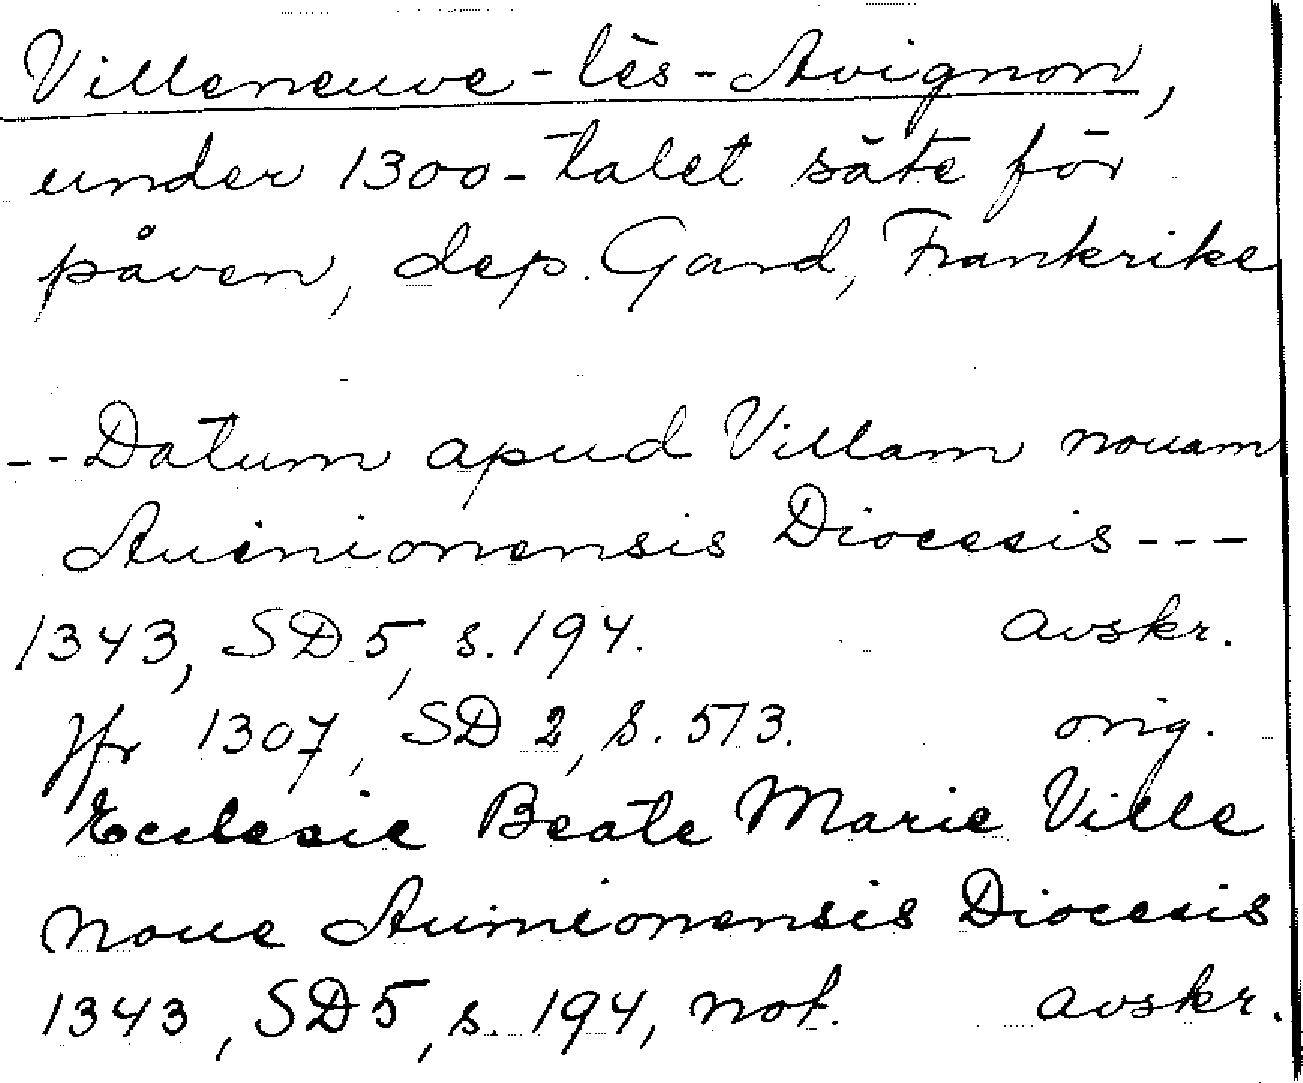 Villeneuve-lès-Avignon,
under 1300-talet säte för
påven, dep. Gard, Frankrike
--Datum apud Villam nouam
Auinionensis Diocesis---
1343, SD 5, s. 194. avskr.
Jfr 1307, SD 2, s. 513. orig.
Ecclesie Beate Marie Ville
noue Auinionensis Diocesis
1343, SD 5, s. 194, not. avskr.